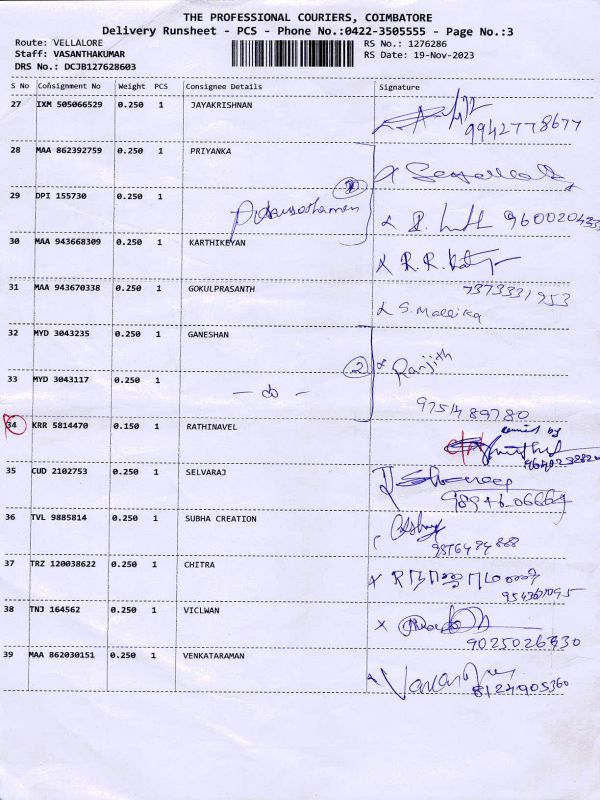 THE PROFESSIONAL COURIERS, COIMBATORE
Delivery Runsheet - PCS - Phone No.:0422-3505555 - Page No.:3
Route: VELLALORE
Staff: VASANTHAKUMAR
DRS No.: DCJB127628603
RS No.: 1276286
RS Date: 19-Nov-2023
S No Consignment No Weight PCS Consignee Details Signature
27 IXM 505066529 0.250 1 JAYAKRISHNAN
9942778677
28 MAA 862392759 0.250 1 PRIYANKA
29 DPI 155730 0.250 1
30 MAA 943668309 0.250 1 KARTHIKEYAN
R.R.
31 MAA 943670338 0.250 1 GOKULPRASANTH 7373331953
S. Mallika
32 MYD 3043235 0.250 1 GANESHAN
2 Ranjith
33 MYD 3043117 0.250 1 - do -
9751489780
34 KRR 5814470 0.150 1 RATHINAVEL
35 CUD 2102753 0.250 1 SELVARAJ
36 TVL 9885814 0.250 1 SUBHA CREATION
37 TRZ 120038622 0.250 1 CHITRA
38 TNJ 164562 0.250 1 VICLWAN
9025026330
39 MAA 862030151 0.250 1 VENKATARAMAN
8124905360